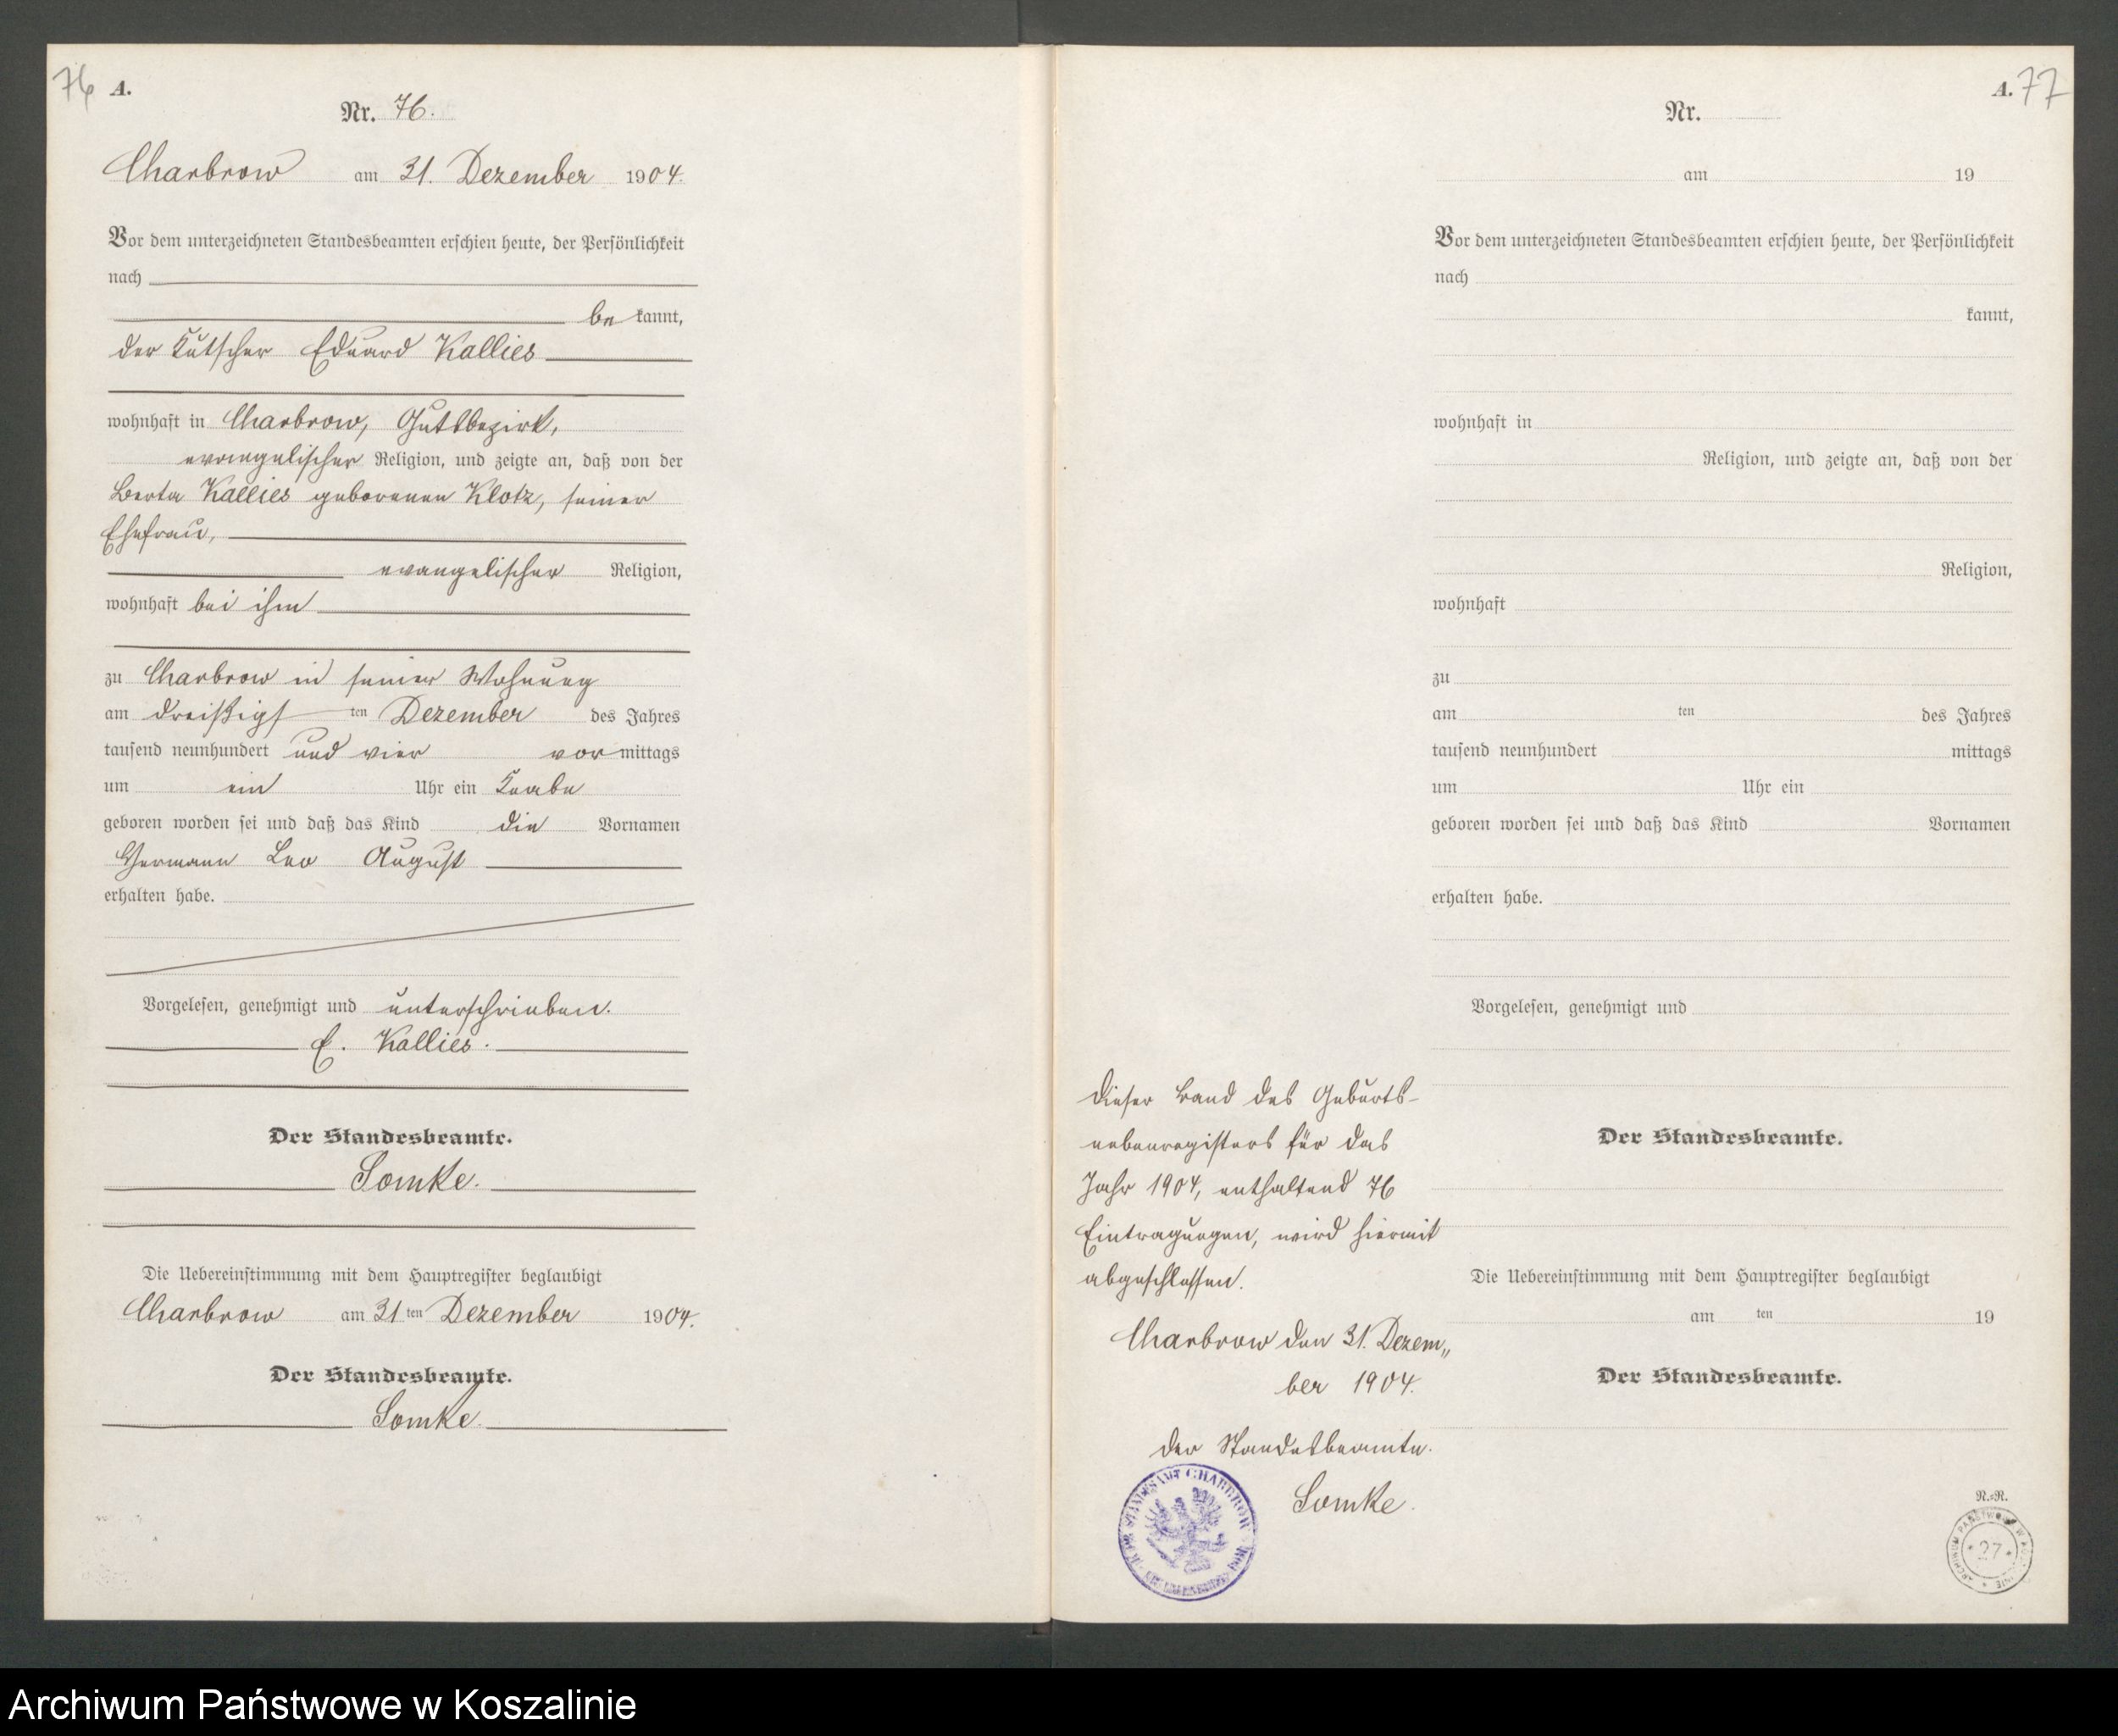 76
A.
Nr. 76.
Charbrow am 31. Dezember 1904.
Vor dem unterzeichneten Standesbeamten erschien heute, der Persönlichkeit
nach
be kannt,
der Kutscher Eduard Kallies
wohnhaft in Charbrow, Gutsbezirk,
evangelischer Religion, und zeigte an, daß von der
Berta Kallies geborenen Klotz, seiner
Ehefrau,
evangelischer Religion,
wohnhaft bei ihm
zu Charbrow in seiner Wohnung
am dreißigst ten Dezember des Jahres
tausend neunhundert und vier vor mittags
um ein Uhr ein Knabe
geboren worden sei und daß das Kind die Vornamen
Hermann Leo August
erhalten habe.
Vorgelesen, genehmigt und unterschrieben.
E. Kallies.
Der Standesbeamte.
Somke.
Die Uebereinstimmung mit dem Hauptregister beglaubigt
Charbrow am 31 ten Dezember 1904.
Der Standesbeamte.
Somke.
A. 77
Nr.
am 19
Vor dem unterzeichneten Standesbeamten erschien heute, der Persönlichkeit
nach
kannt,
wohnhaft in
Religion, und zeigte an, daß von der
Religion,
wohnhaft
zu
am ten des Jahres
tausend neunhundert mittags
um Uhr ein
geboren worden sei und daß das Kind Vornamen
erhalten habe.
Vorgelesen, genehmigt und
Der Standesbeamte.
Die Uebereinstimmung mit dem Hauptregister beglaubigt
am ten 19
Der Standesbeamte.
Dieser Band des Geburts-
nebenregisters für das
Jahr 1904, enthaltend 76
Eintragungen, wird hiermit
abgeschlossen.
Charbrow den 31. Dezem„
ber 1904.
Der Standesbeamte.
Somke.
STANDESAMT CHARBROW
N.=R.
ARCHIWUM PAŃSTWOWE W KOSZALINIE
27
Archiwum Państwowe w Koszalinie